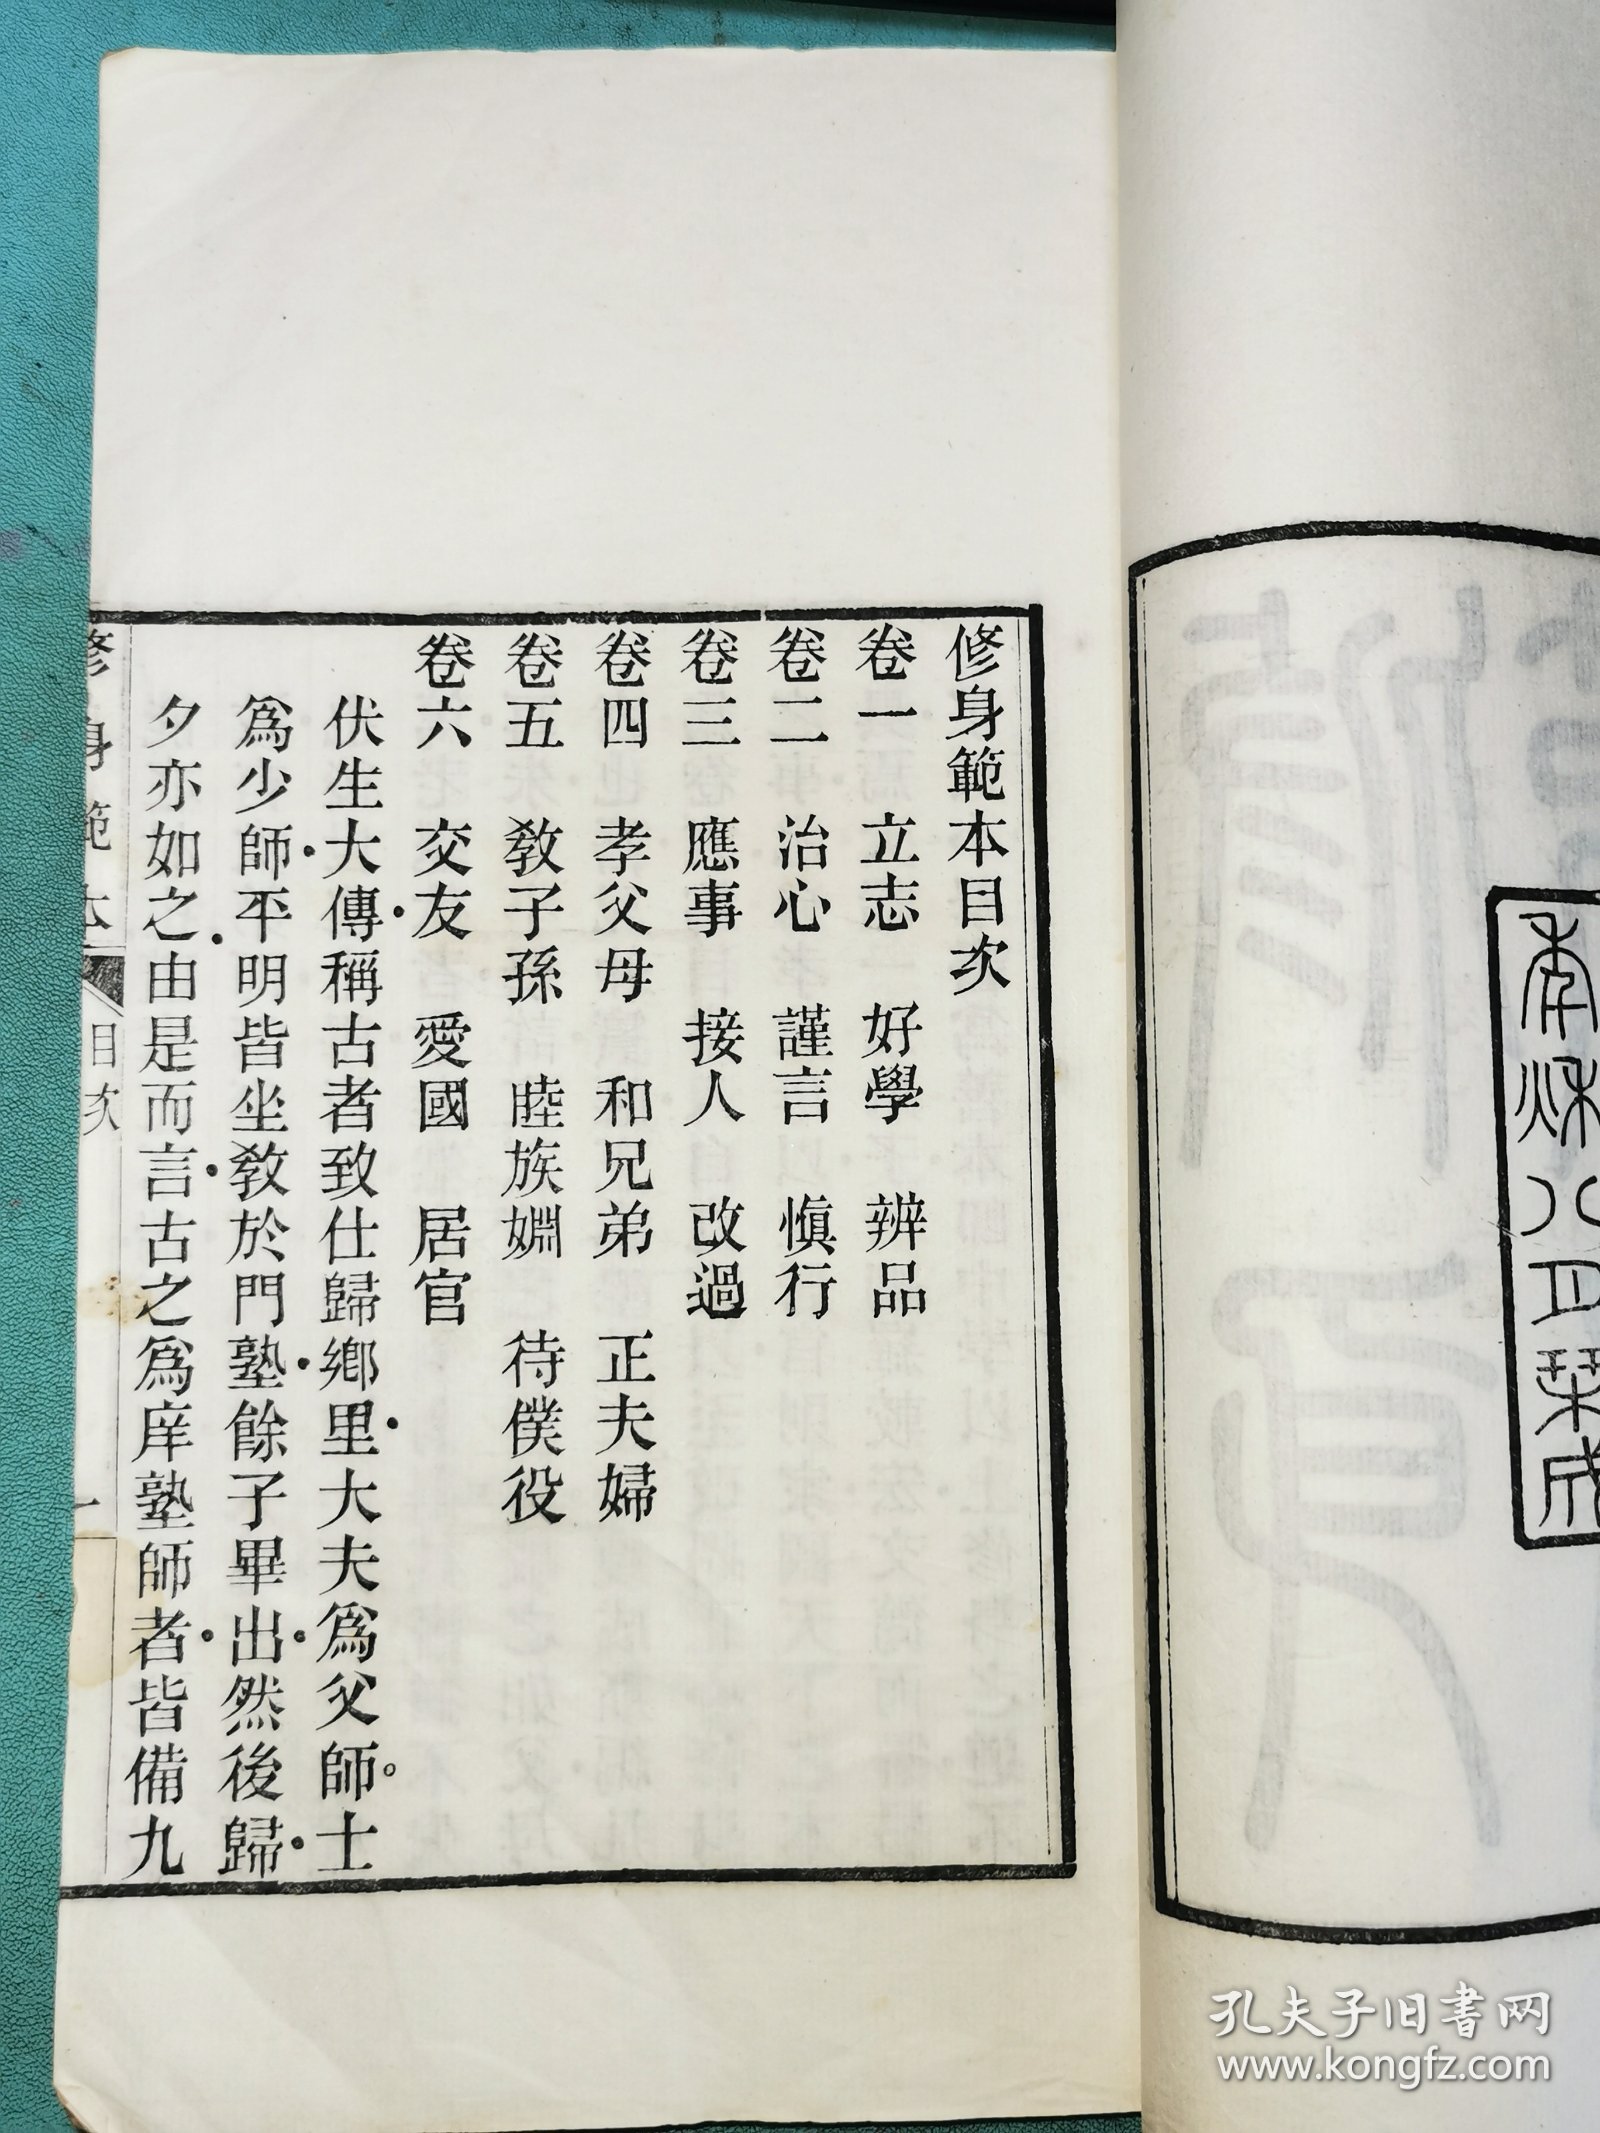 季秌八日栞成
修身範本目次
卷一　立志　好學　辨品
卷二　治心　謹言　愼行
卷三　應事　接人　改過
卷四　孝父母　和兄弟　正夫婦
卷五　敎子孫　睦族婣　待僕役
卷六　交友　愛國　居官
伏生大傳稱古者致仕歸鄕里大夫爲父師。士
爲少師平明皆坐敎於門塾餘子畢出然後歸
夕亦如之由是而言古之爲庠塾師者皆備九
修身範本　目次　一
孔夫子旧书网
www.kongfz.com